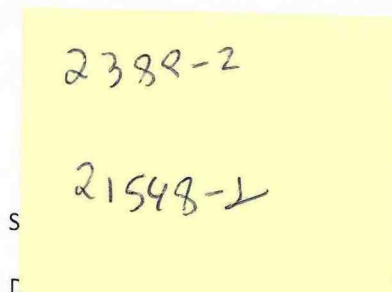 2388-2
21548-1
S
D